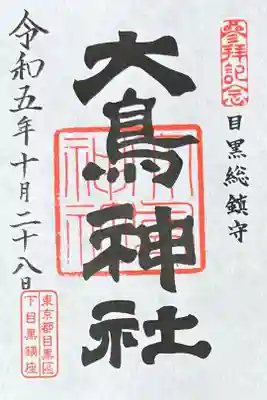 參拝記念
目黒総鎮守
大鳥神社
令和五年十月二十八日
東京都目黒區
下目黒鎮座